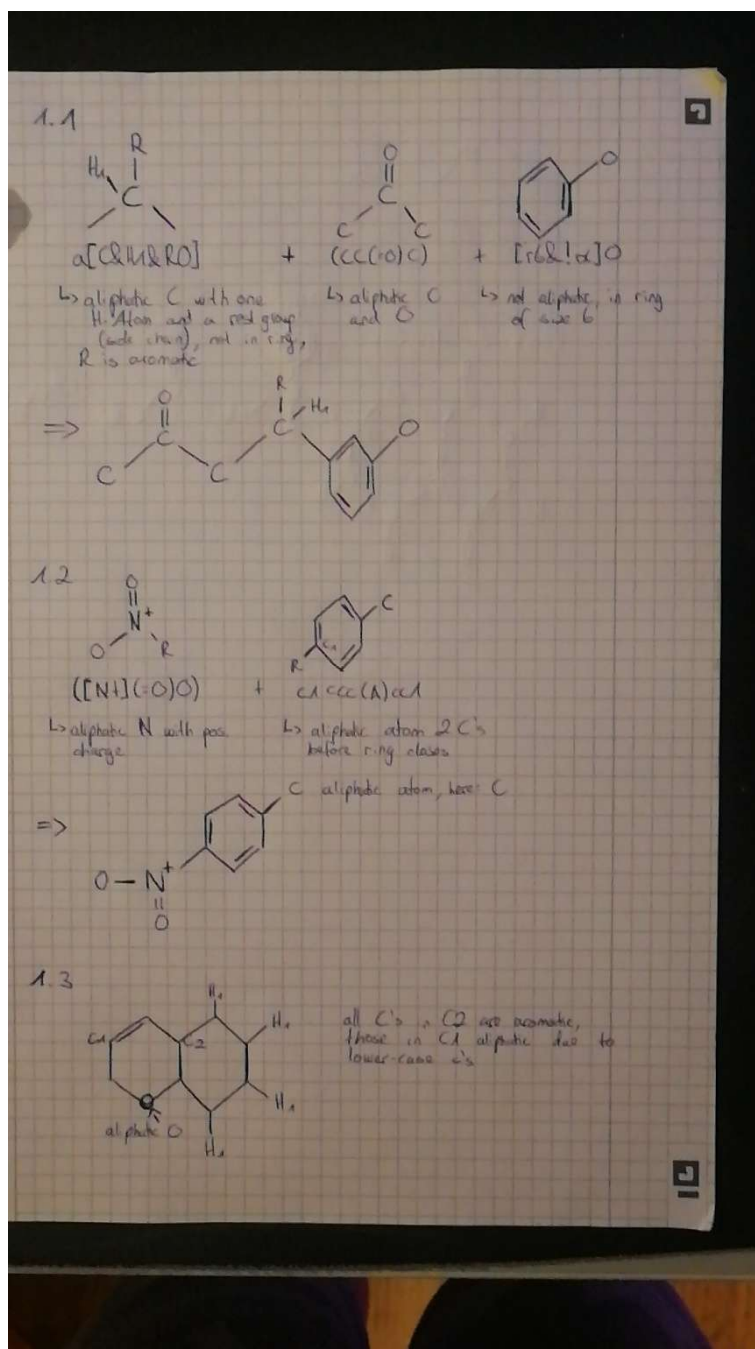 1.1
R
H₁
C
O
C
C C
O
a[C&H1&R0] + (CC(=O)C) + [r6&!α]O
↳ aliphatic C with one
H-Atom and a rest group
(side chain), not in ring,
R is aromatic
↳ aliphatic C
and O
↳ not aliphatic, in ring
of size 6
⇒
O
C
C
C
C
R
H₁
O
1.2
O
N⁺
O
R
C
R
([N+](=O)O) + c1ccc(A)cc1
↳ aliphatic N with pos.
charge
↳ aliphatic atom 2 C's
before ring closes
⇒
C aliphatic atom, here: C
O — N⁺
O
1.3
H₁
C1
C2
H₁
H₁
H₁
aliphatic O
all C's in C2 are aromatic,
those in C1 aliphatic due to
lower-case c's